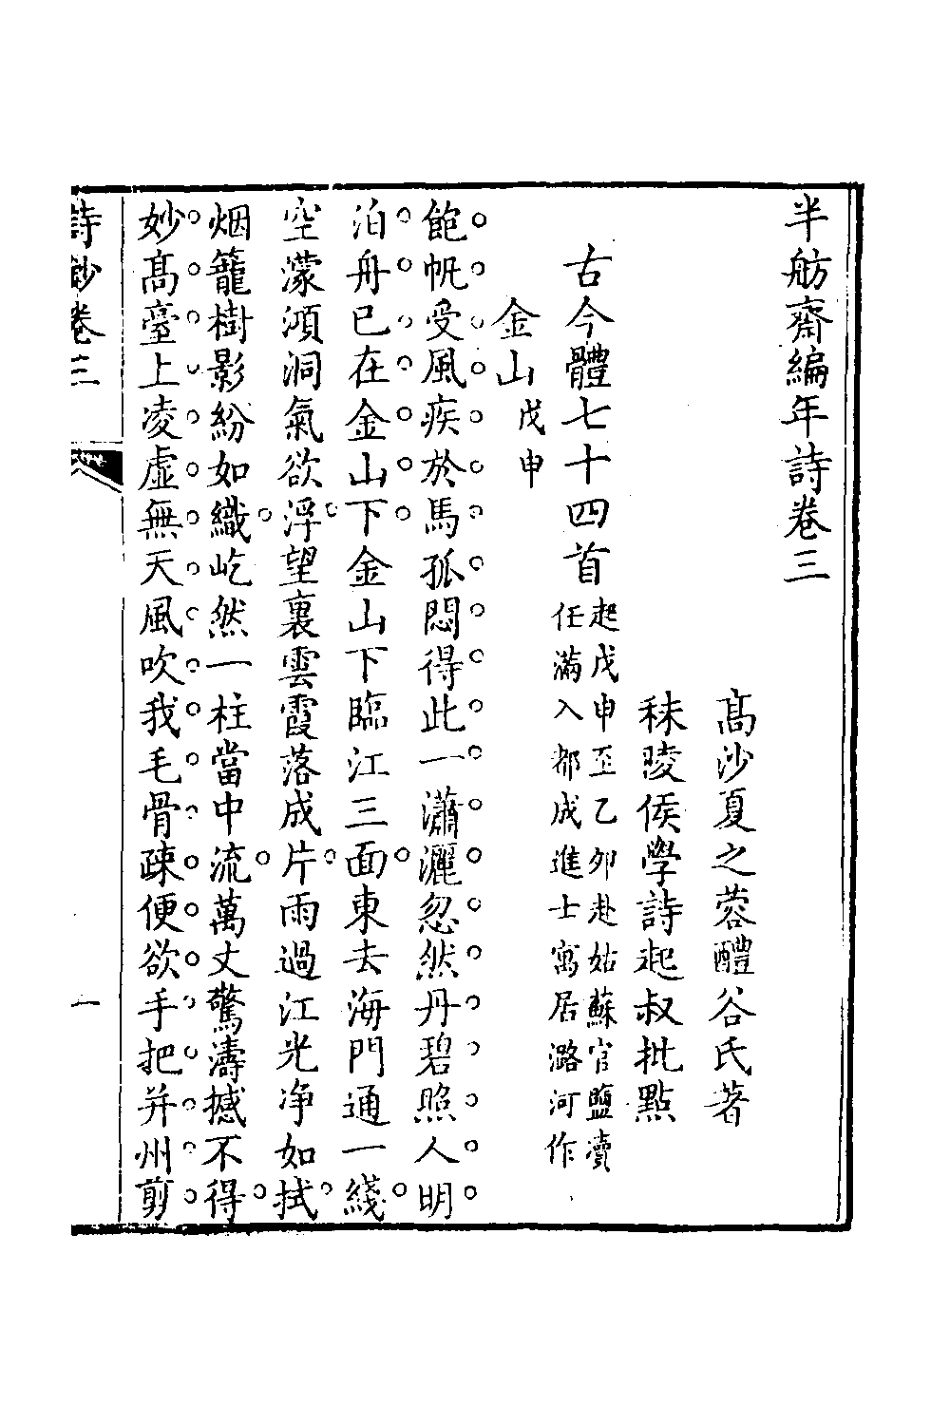 半舫齋編年詩卷三
高沙夏之蓉醴谷氏著
秣陵侯學詩起叔批點
古今體七十四首起戊申至乙卯赴姑蘇官鹽瀆
任滿入都成進士寓居潞河作
金山戊申
飽帆受風疾於馬孤悶得此一瀟灑忽然丹碧照人明
泊舟已在金山下金山下臨江三面東去海門通一綫
空濛澒洞氣欲浮望裏雲霞落成片雨過江光净如拭
烟籠樹影紛如織屹然一柱當中流萬丈驚濤撼不得
妙高臺上凌虛無天風吹我毛骨疎便欲手把并州剪
詩鈔卷三
一